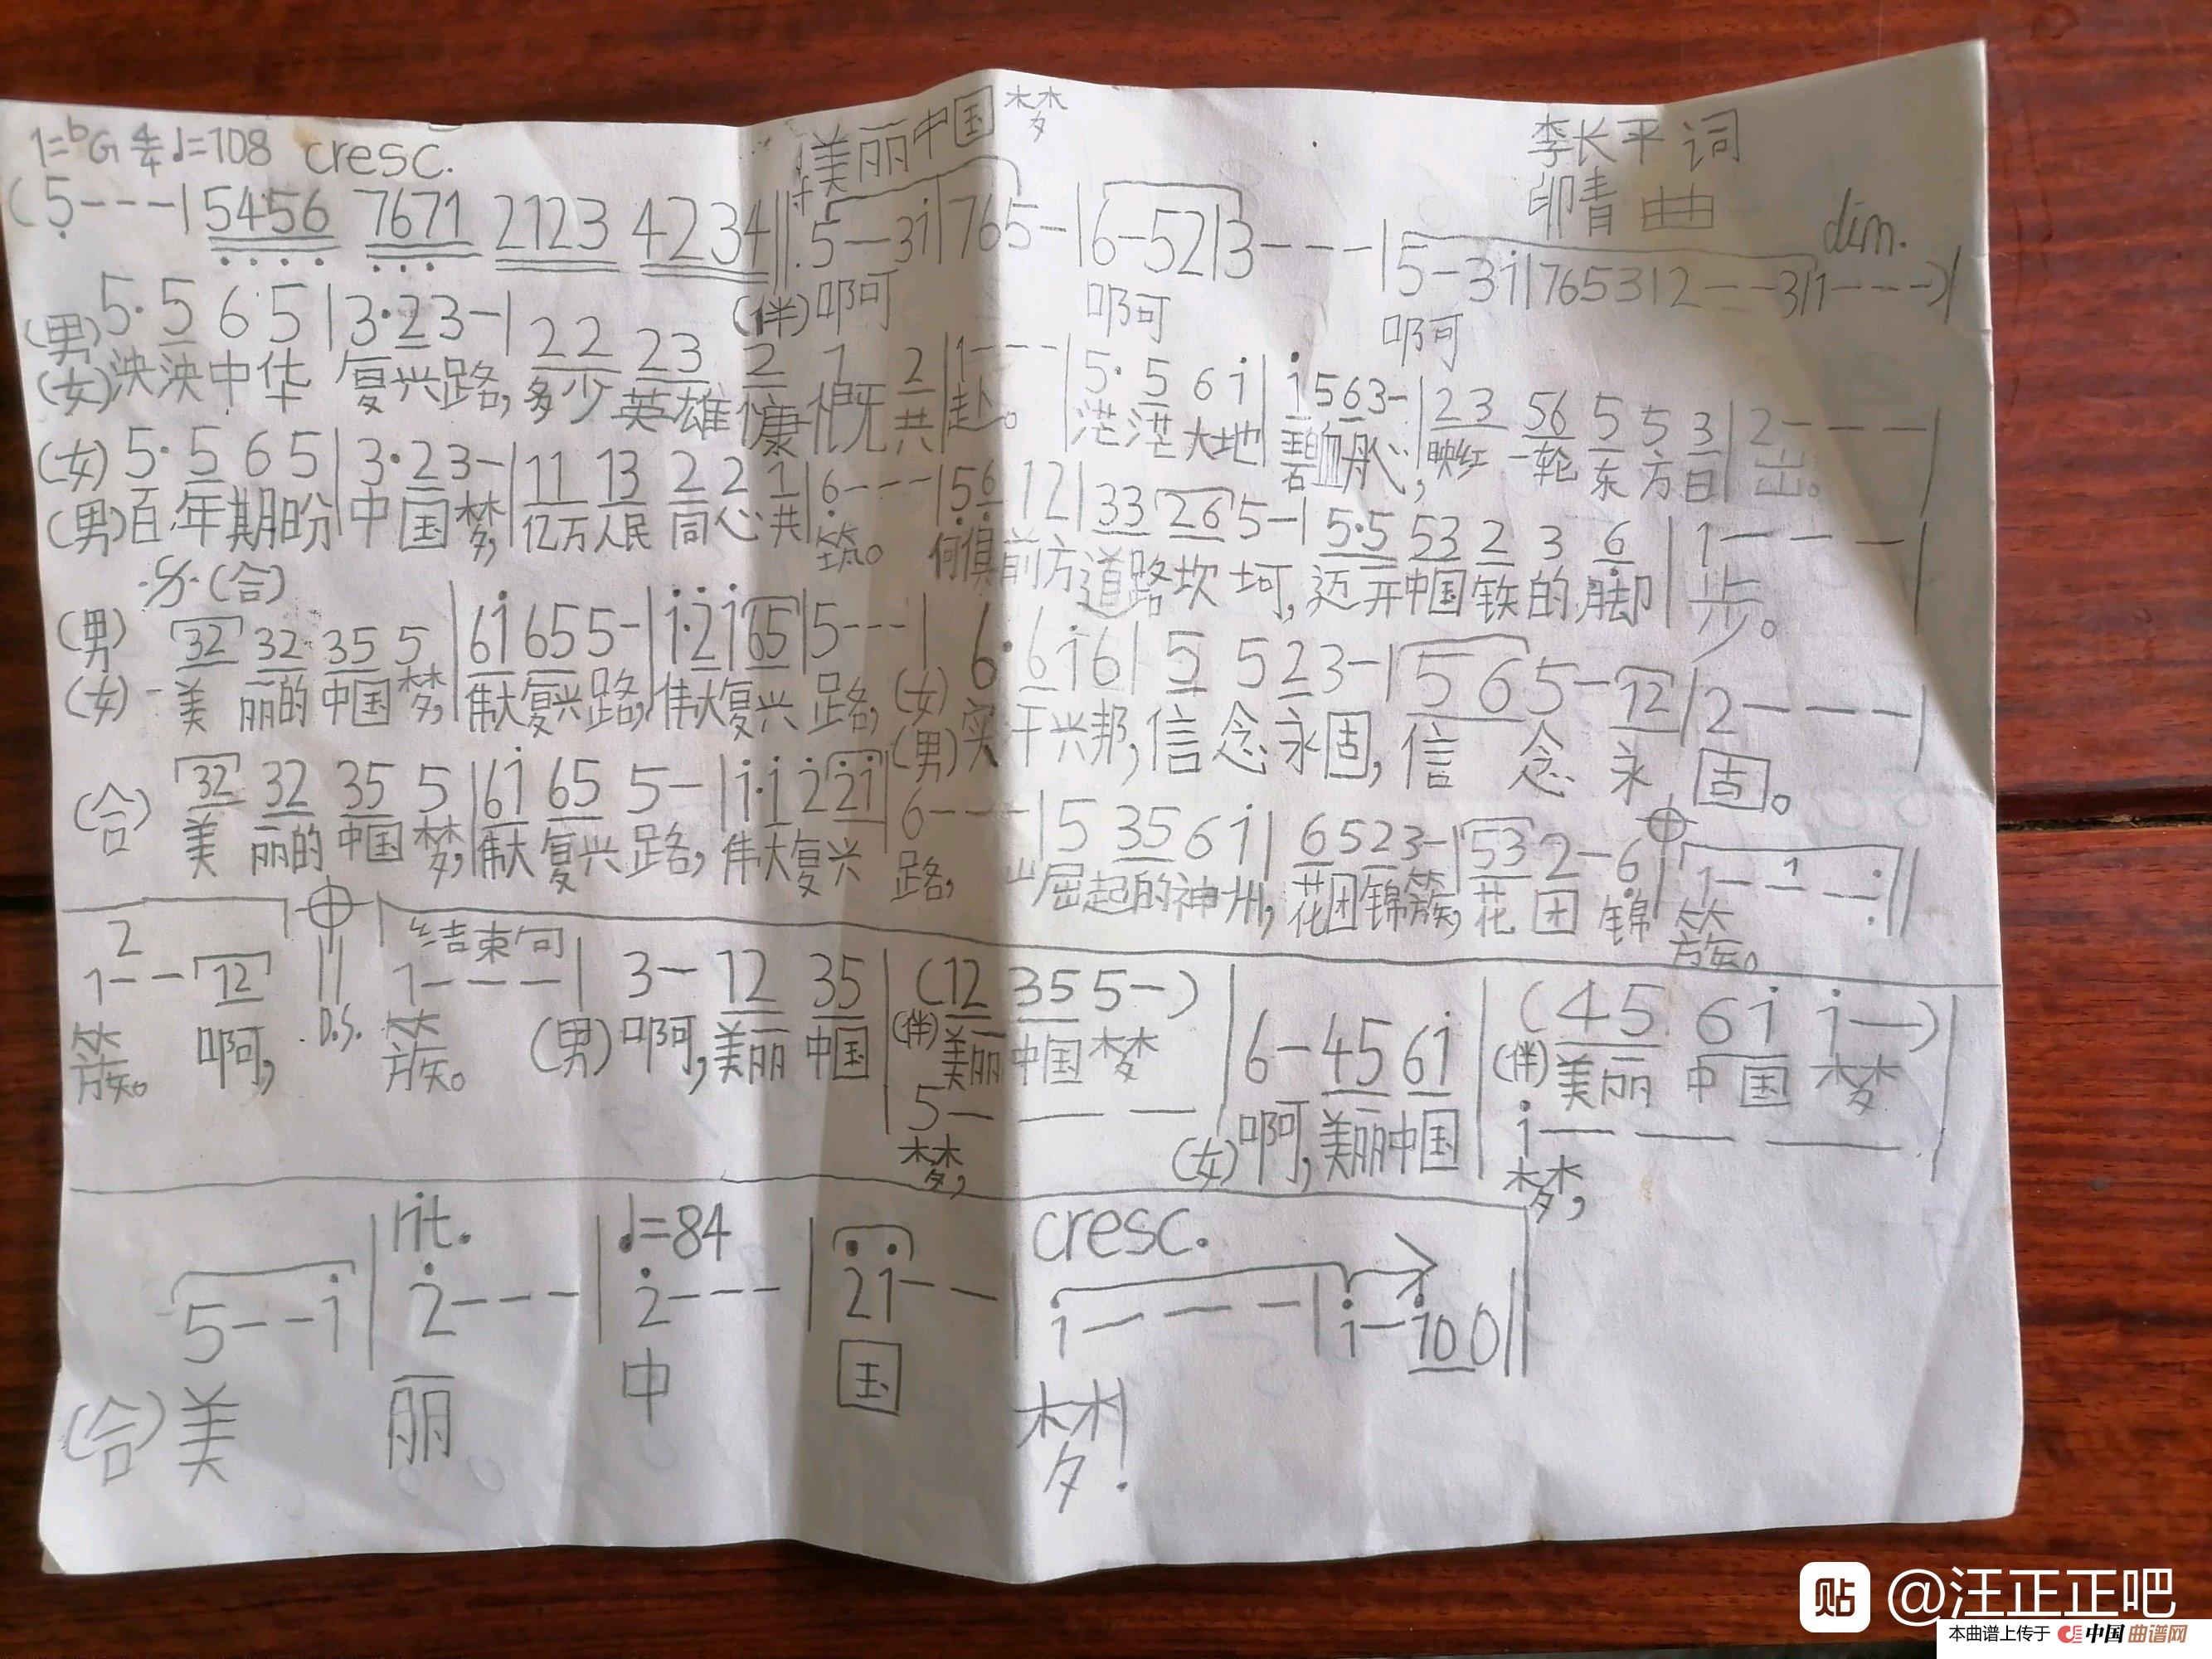 1=♭G 4/4 ♩=108 cresc. 美丽中国梦 李长平 词
印青 曲
dim.
(5---|5456 7671 2123 4234‖: f 5--3i|765-|6-52|3---|5-3i|76531|2--3|1---)|
(伴)啊 啊 啊
(男) 5·5 6 5|3·2 3-|22 23 2 7 2|1---|5·5 6 i|i 5 6 3-|23 56 5 5 3|2---|
(女)泱泱中华 复兴路,多少英雄慷慨共赴。 茫茫大地 碧血丹心,映红一轮东方日出。
(女) 5·5 6 5|3·2 3-|11 13 2 2 1|6---|56 12|33 26 5-|5·5 53 2 3 6|1---|
(男)百年期盼中国梦,亿万人民同心共筑。 何惧前方道路坎坷,迈开中国铁的脚步。
𝄋(合)
(男) 32 32 35 5|6i 65 5-|i·2 i 65|5---|6·6 i 6|5 5 2 3-|5 6 5-12|2---|
(女)美丽的中国梦,伟大复兴路,伟大复兴路,(女)(男)实干兴邦,信念永固,信念永固。
(合) 32 32 35 5|6i 65 5-|i·i 2 2i|6---|5 35 6 i|6 5 2 3-|53 2-6|1---:‖
美丽的中国梦,伟大复兴路,伟大复兴路, 崛起的神州,花团锦簇,花团锦簇。
2 结束句
1--12‖ 1---|3-12 35|(12 35 5-)|6-45 6i|(45 6i i-)|
簇。 啊, D.S. 簇。 (男)啊,美丽中国 (伴)美丽中国梦 (女)啊,美丽中国 (伴)美丽中国梦
5--- i---
梦, 梦,
rit. ♩=84 cresc.
5--i|2---|2---|2i--|i---|i-i0 0‖
(合)美 丽 中 国 梦!
贴 @汪正正吧
本曲谱上传于 中国曲谱网